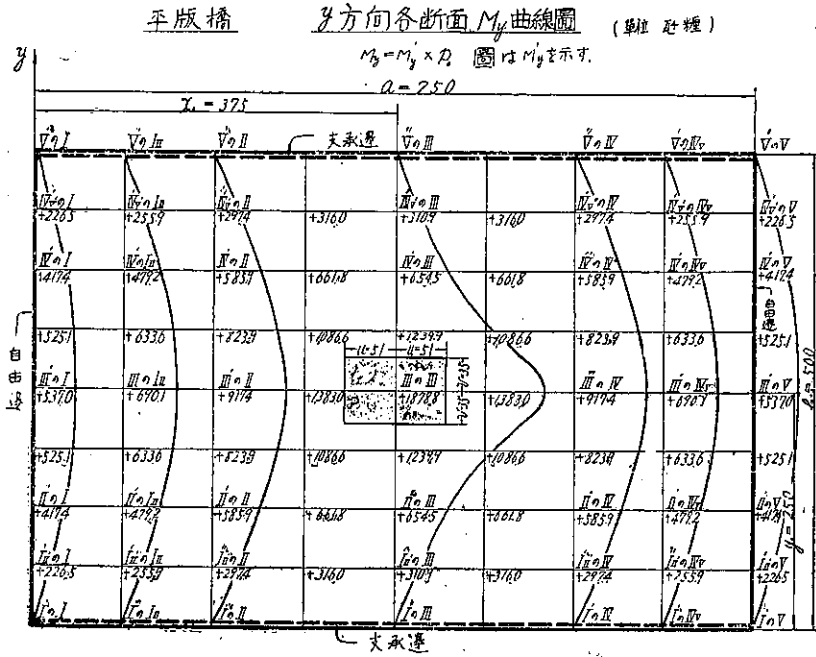 平版橋 y方向各断面 My曲線圖 (單位 瓩糎)
My=M'y×P。 圖は M'y を示す.
y
a=750
x₁=375
V'のI V'のIII V'のII 支承邊 V'のIII V'のIV V'のIV V'のV
IV'のI IV'のI IV'のII IV'のIII IV'のIV IV'のIV IV'のV
+226.5 +255.9 +297.4 +316.0 +310.9 +316.0 +297.4 +255.9 +226.5
IV'のI IV'のI IV'のII IV'のIII IV'のIV IV'のIV IV'のV
+417.4 +479.2 +585.9 +661.8 +654.5 +661.8 +585.9 +479.2 +417.4
自由邊
自由邊
+525.1 +633.6 +823.9 +1,086.6 +1,239.9 +1,086.6 +823.9 +633.6 +525.1
u=51 u=51
III'のI IIIのI III'のII IIIのIII IIIのIV III'のIV III'のV
+537.0 +690.1 +917.4 +1,383.0 +1,878.8 +1,383.0 +917.4 +690.1 +537.0
v=35 v=35
b=500
+525.1 +633.6 +823.9 +1,086.6 +1,239.9 +1,086.6 +823.9 +633.6 +525.1
II'のI II'のI II'のII II'のIII II'のIV II'のIV II'のV
+417.4 +479.2 +585.9 +661.8 +654.5 +661.8 +585.9 +479.2 +417.4
y₁=250
I'のI I'のI I'のII I'のIII I'のIV I'のIV I'のV
+226.5 +255.9 +297.4 +316.0 +310.9 +316.0 +297.4 +255.9 +226.5
I'のI I'のI I'のII I'のIII I'のIV I'のIV I'のV
支承邊